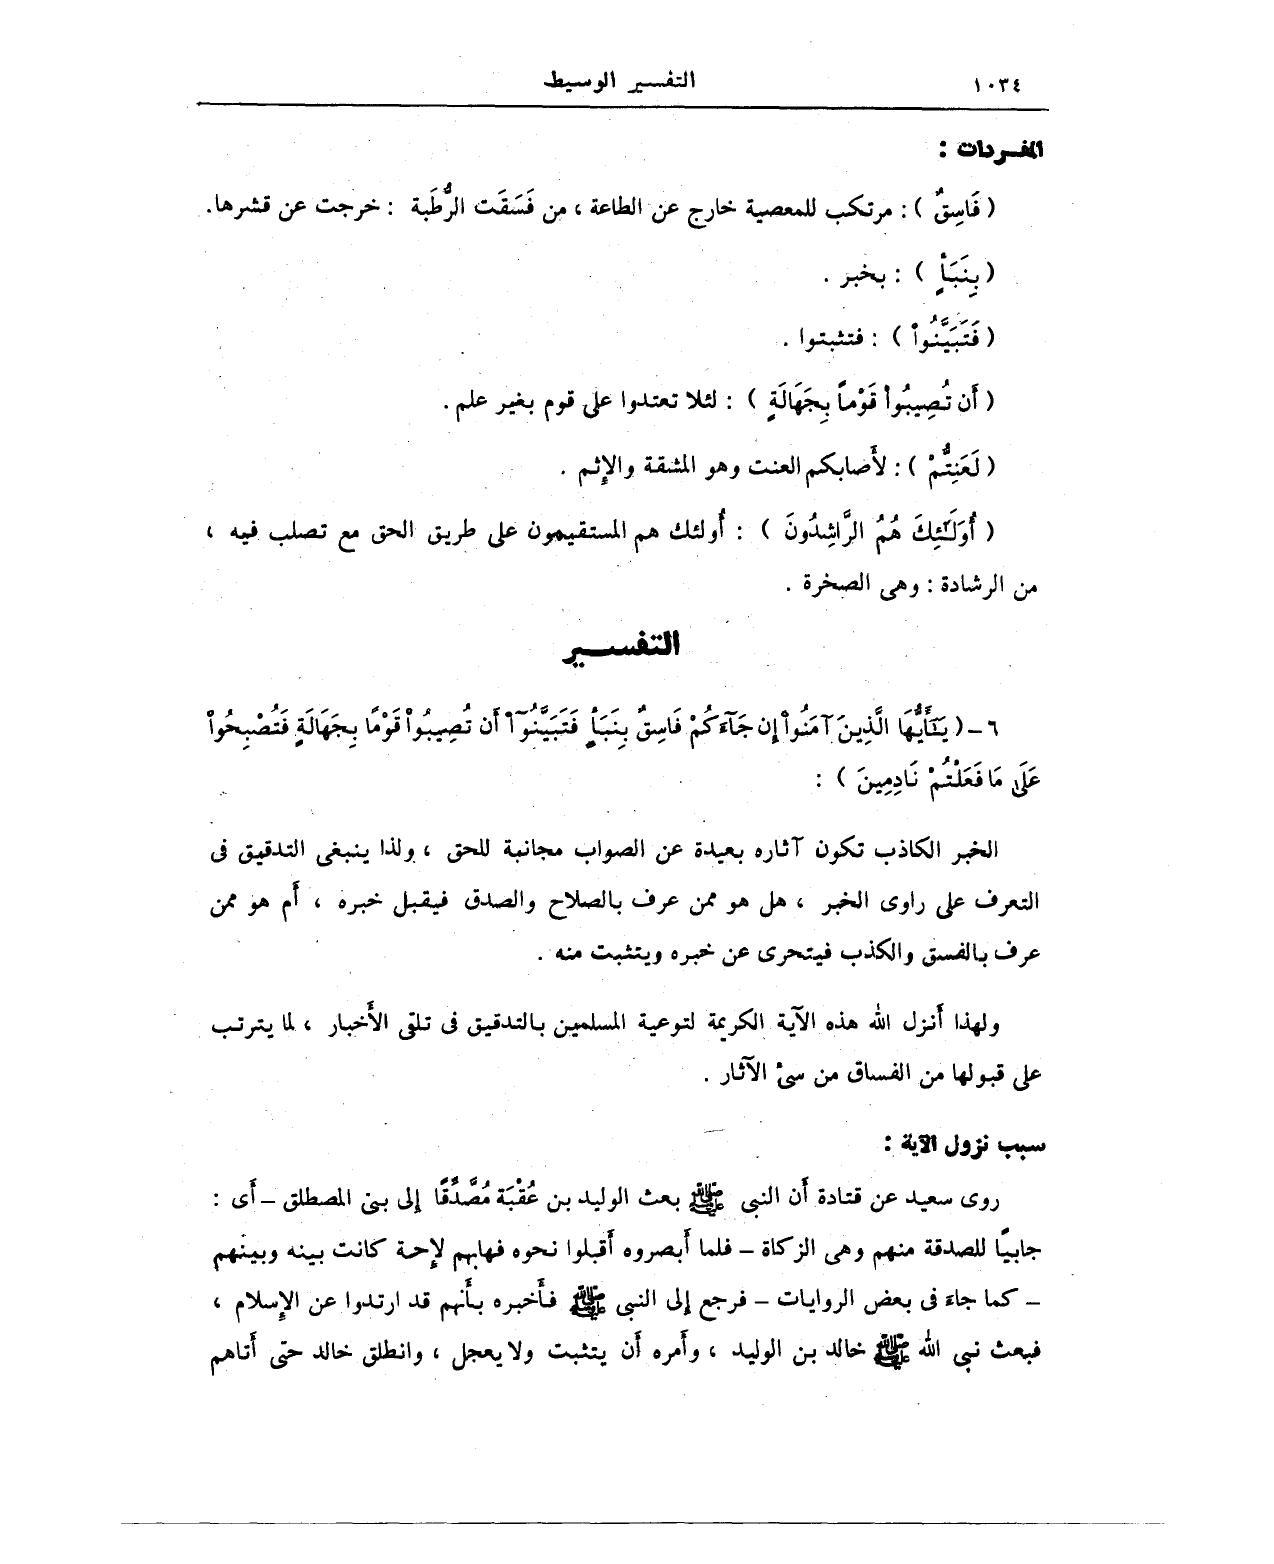 ١٠٣٤ التفسير الوسيط
المفردات :
( فَاسِقٌ ) : مرتكب للمعصية خارج عن الطاعة ، من فَسَقَت الرُّطَبة : خرجت عن قشرها.
( بِنَبَأٍ ) : بخبر .
( فَتَبَيَّنُواْ ) : فتثبتوا .
( أَن تُصِيبُواْ قَوْماً بِجَهَالَةٍ ) : لئلا تعتدوا على قوم بغير علم .
( لَعَنِتُّمْ ) : لأَصابكم العنت وهو المشقة والإِثم .
( أُوَلَٰٓئِكَ هُمُ الرَّاشِدُونَ ) : أُولئك هم المستقيمون على طريق الحق مع تصلب فيه ،
من الرشادة : وهى الصخرة .
التفســـير
٦ – ( يَٰٓأَيُّهَا الَّذِينَ آمَنُواْ إِن جَآءَكُمْ فَاسِقٌ بِنَبَأٍ فَتَبَيَّنُوٓاْ أَن تُصِيبُواْ قَوْمًا بِجَهَالَةٍ فَتُصْبِحُواْ
عَلَىٰ مَا فَعَلْتُمْ نَادِمِينَ ) :
الخبر الكاذب تكون آثاره بعيدة عن الصواب مجانبة للحق ، ولذا ينبغى التدقيق فى
التعرف على راوى الخبر ، هل هو ممن عرف بالصلاح والصدق فيقبل خبره ، أَم هو ممن
عرف بالفسق والكذب فيتحرى عن خبره ويتثبت منه .
ولهذا أَنزل الله هذه الآية الكريمة لتوعية المسلمين بالتدقيق فى تلقى الأَخبار ، لما يترتب
على قبولها من الفساق من سىْ الآثار .
سبب نزول الآية :
روى سعيد عن قتادة أَن النبى ﷺ بعث الوليد بن عُقْبَة مُصَّدِّقًا إلى بنى المصطلق – أَى :
جابيًا للصدقة منهم وهى الزكاة – فلما أَبصروه أَقبلوا نحوه فهابهم لإِحة كانت بينه وبينهم
– كما جاءَ فى بعض الروايات – فرجع إلى النبى ﷺ فأَخبره بأَنهم قد ارتدوا عن الإِسلام ،
فبعث نبى الله ﷺ خالد بن الوليد ، وأَمره أَن يتثبت ولا يعجل ، وانطلق خالد حتى أَتاهم